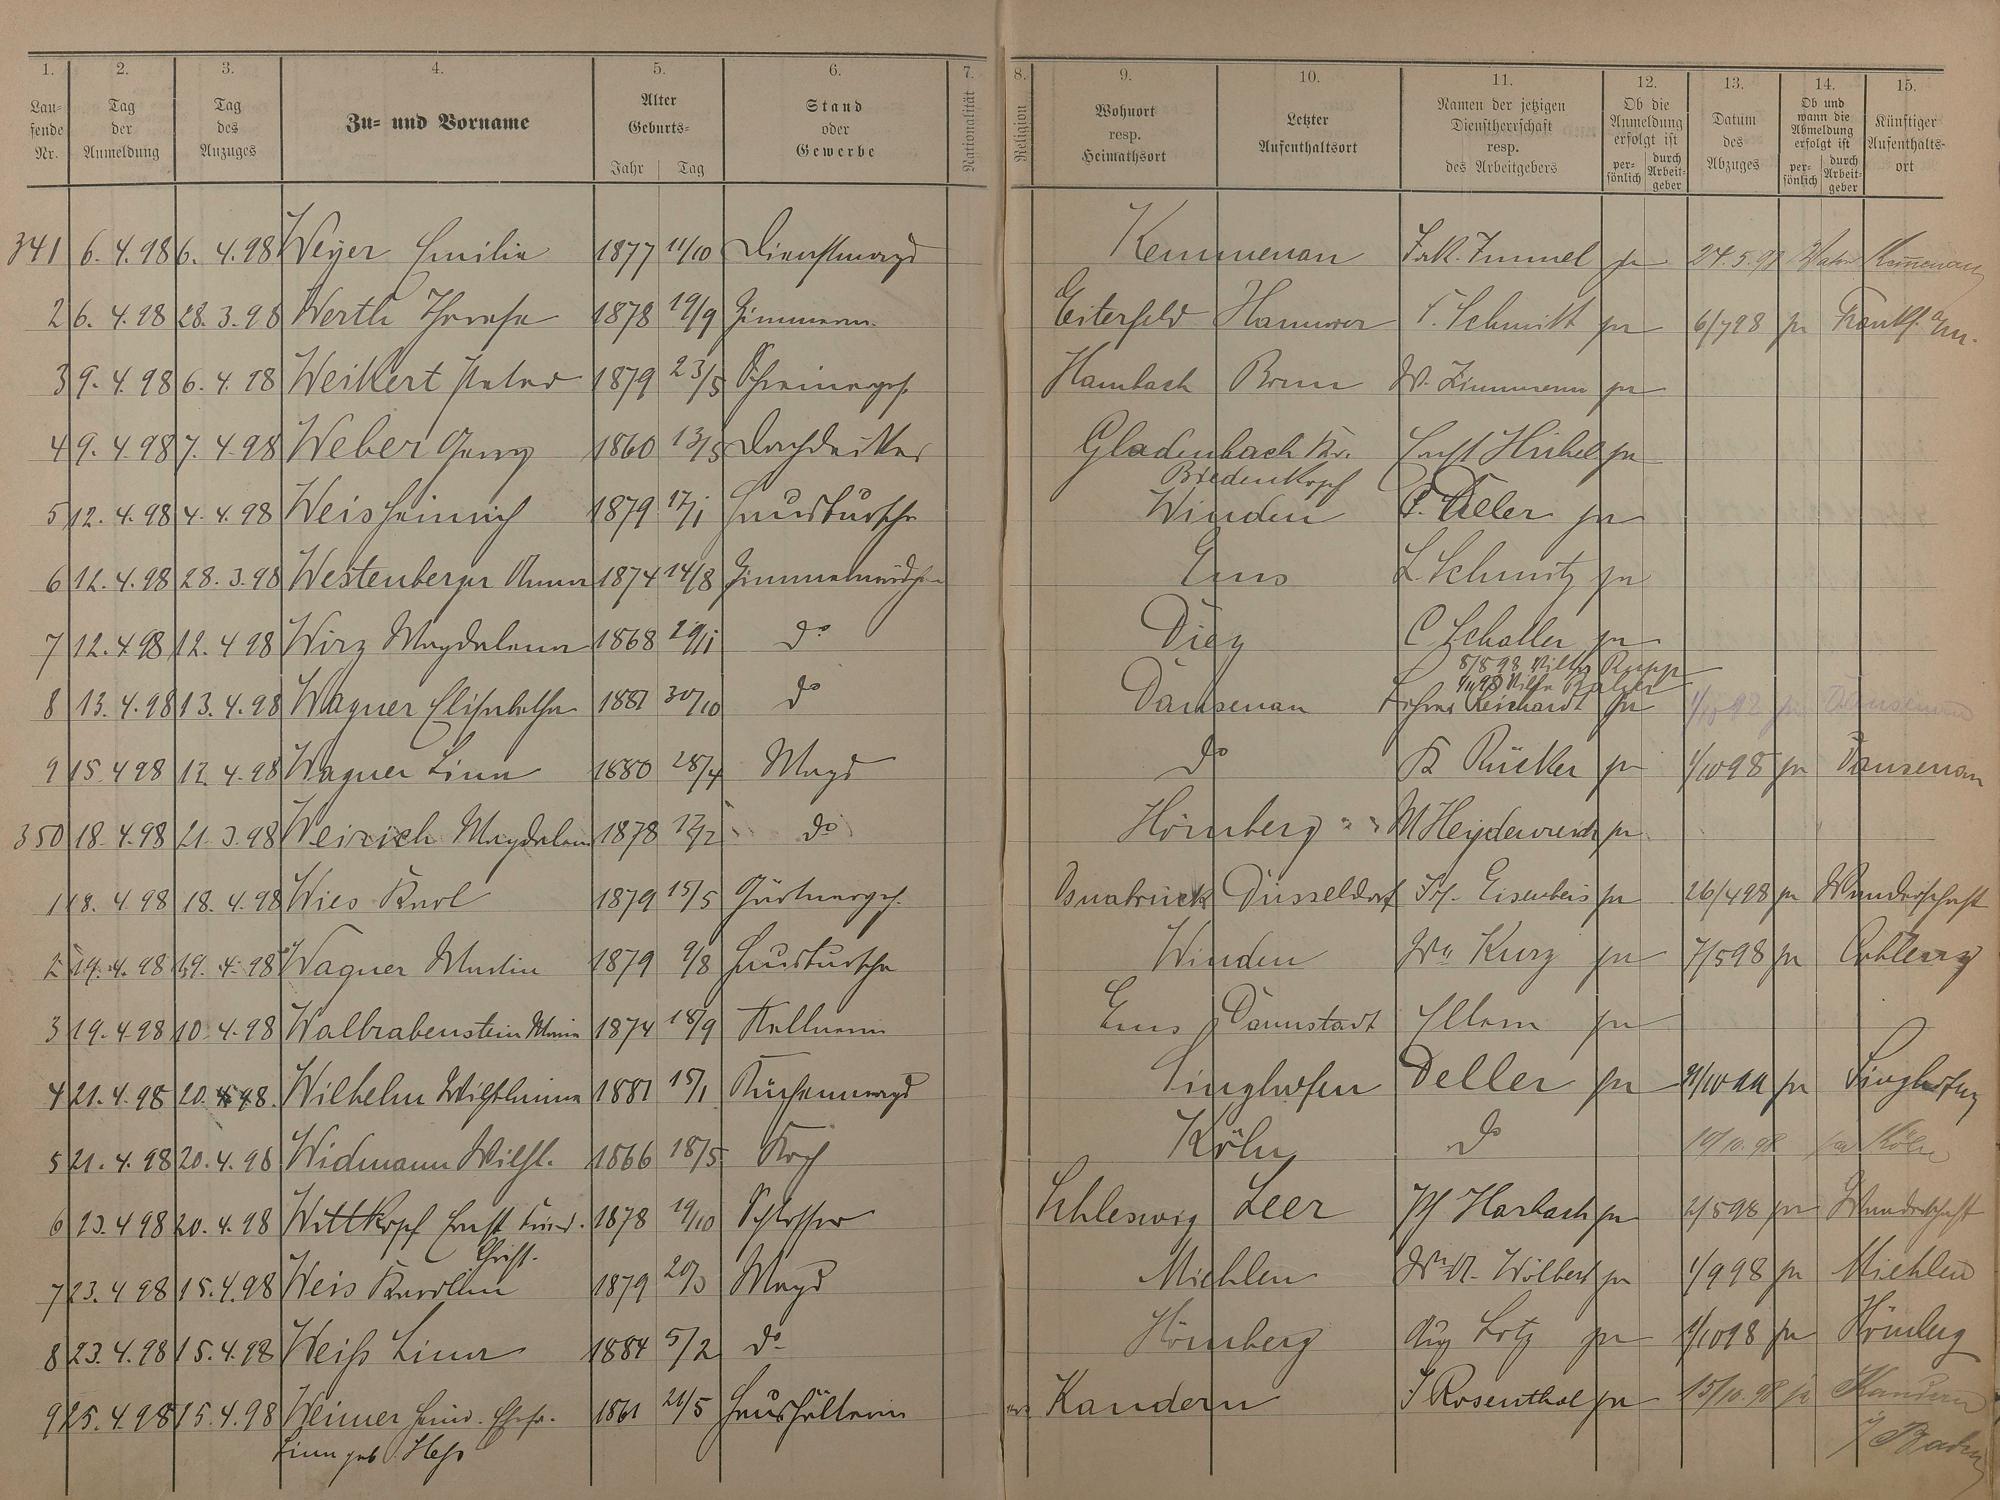 1. 2. 3. 4. 5. 6. 7. 8. 9. 10. 11. 12. 13. 14. 15.
Laufende Nr. Tag der Anmeldung Tag des Anzuges Zu- und Vorname Alter Geburts- Jahr Tag Stand oder Gewerbe Nationalität Religion Wohnort resp. Heimathsort Letzter Aufenthaltsort Namen der jetzigen Dienstherrschaft resp. des Arbeitgebers Ob die Anmeldung erfolgt ist persönlich durch Arbeitgeber Datum des Abzuges Ob und wann die Abmeldung erfolgt ist persönlich durch Arbeitgeber Künftiger Aufenthaltsort
341 6. 4. 98 6. 4. 98 Weyer Emilie 1877 11/10 Dienstmagd Kemmenau Immel 24. 5. 98 Kemenau
2 6. 4. 98 28. 3. 98 Werth Therese 1878 19/9 Zimmerm. Eiterfeld Hannover F. Schmitt 6/7 98 Frankf. a/m.
3 9. 4. 98 6. 4. 98 Weikert Peter 1879 23/5 Schreinerges. Hambach Bonn W. Zimmermann
4 9. 4. 98 7. 4. 98 Weber Georg 1860 13/5 Dachdecker Gladenbach Kr. Ernst Hinkel
Biedenkopf
5 12. 4. 98 4. 4. 98 Weis Heinrich 1879 17/1 Hausbursche Winden
6 12. 4. 98 28. 3. 98 Westenberger Anna 1874 14/8 Zimmermädchen Ems L. Schmitz
7 12. 4 98 12. 4 98 Wirz Magdalena 1868 29/11 do Diez C Schaller
8/5 98 Wilh. Rupp
8 13. 4. 98 13. 4. 98 Wagner Elisabetha 1881 30/10 do Dausenau Reichardt Dausenau
9 15 4 98 12. 4. 98 Wagner Lina 1880 28/4 Magd do K Rücker 1/10 98 Dausenau
350 18. 4. 98 21. 3. 98 Weirich Magdalena 1878 do Hömberg M Heydenreich
1 18. 4. 98 18. 4. 98 Wies Karl 1879 15/5 Gärtnerges. Osnabrück Düsseldorf Eisenbeis 26/4 98 Wanderschaft
2 19. 4. 98 19. 4. 98 Wagner Martin 1879 9/8 Hausbursche Winden Wm Kurz 7/5 98 Coblenz
3 19. 4 98 10. 4. 98 Walbrabenstein Maria 1874 18/9 Kellnerin Ems Darmstadt
4 21. 4. 98 20. 4. 98. Wilhelm Wilhelmine 1881 15/1 Küchenmagd Singhofen Deller Singhofen
5 21. 4. 98 20. 4. 98 Widmann Wilh. 1866 18/5 Koch Köln do 19/10. 98 Köln
6 23. 4 98 20. 4. 98 Wittkopf Ernst Friedr. 1878 19/10 Schlosser Schleswig Leer Ph Harbach 2/5 98 Wanderschaft
Christ.
7 23. 4 98 15. 4. 98 Weis Karoline 1879 20/3 Magd Miehlen Wm A. Wölbert 1/9 98 Miehlen
8 23. 4. 98 15. 4. 98 Weiß Lina 1884 5/2 do Hömberg Aug Lotz 1/10 98 Hömberg
9 25. 4. 98 15. 4. 98 Weimer Heinr. Ehefr. 1861 21/5 Haushälterin Kandern J Rosenthal 15/10. 98 Kandern
Lina geb. Heß i/ Baden